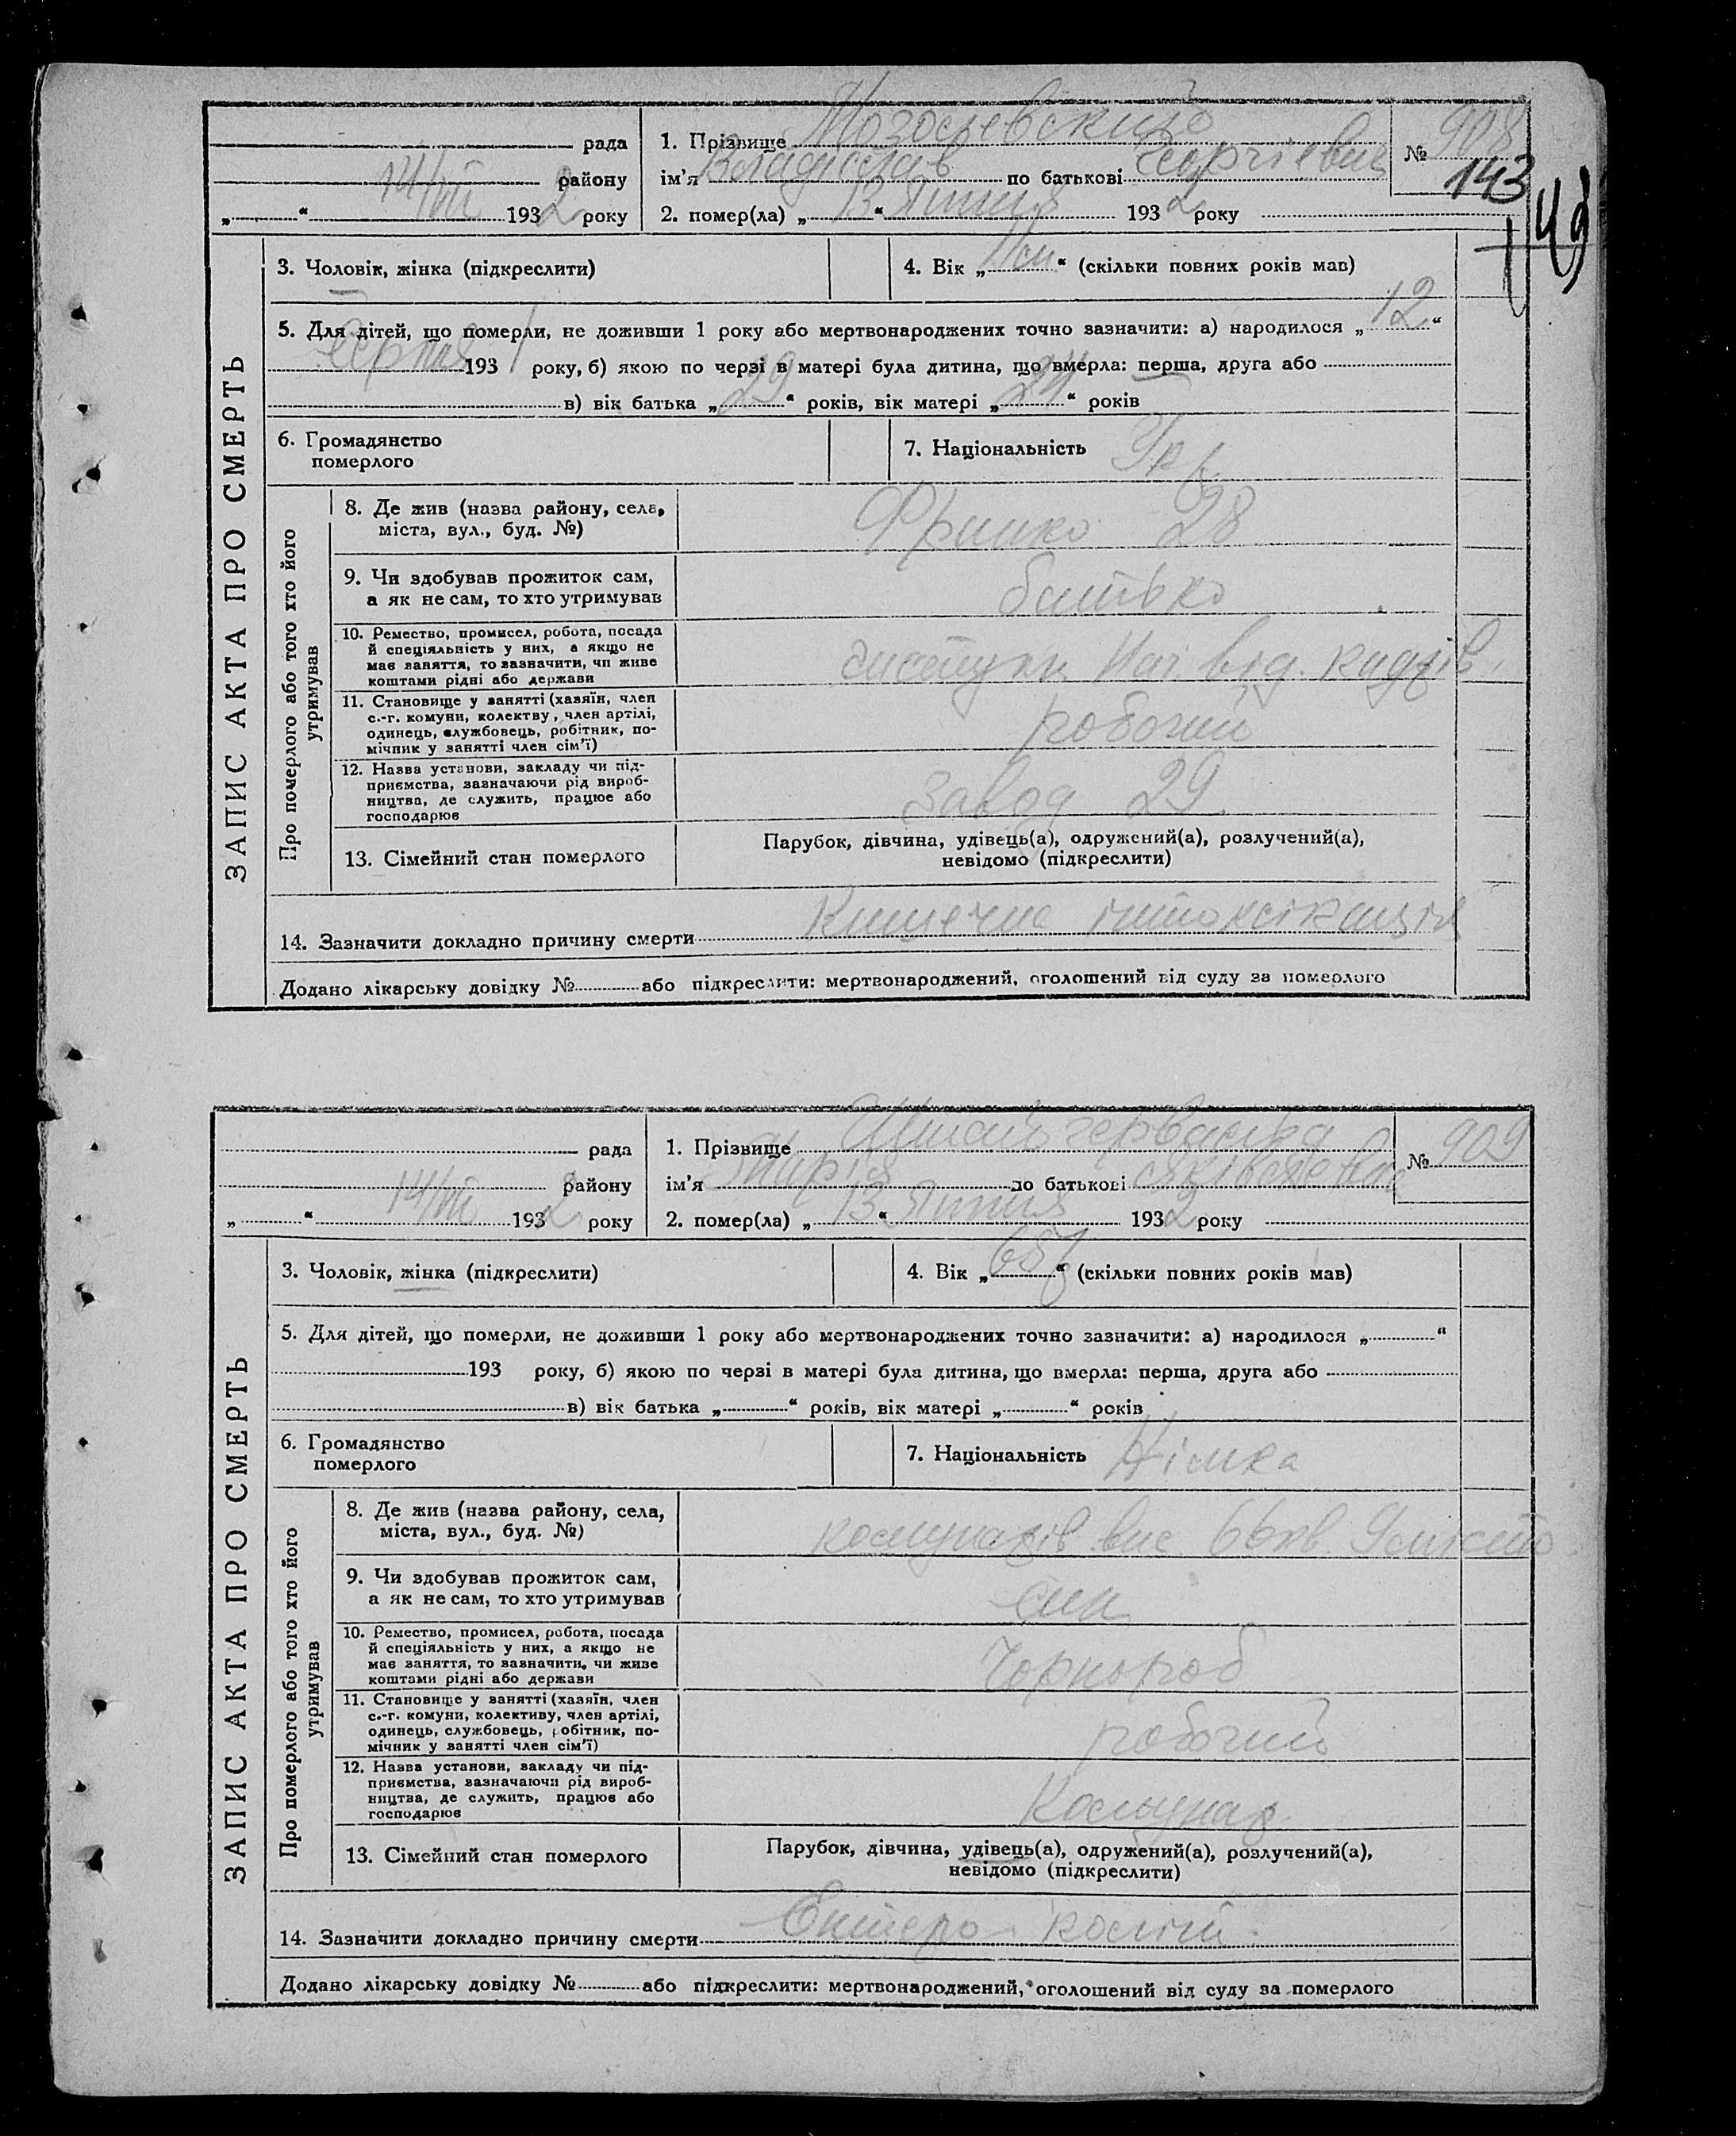 ЗАПИС АКТА ПРО СМЕРТЬ
рада
району
14/VII 1932 року
1. Прізвище
ім'я Владіслав по батькові Георгіевич
2. помер(ла) „13“ Липня 1932 року
№ 908
143
3. Чоловік, жінка (підкреслити)
4. Вік „11 м“ (скільки повних років мав)
5. Для дітей, що померли, не доживши 1 року або мертвонароджених точно зазначити: а) народилося „12“
Серпня 1931 року, б) якою по черзі в матері була дитина, що вмерла: перша, друга або
в) вік батька „29“ років, вік матері „24“ років
6. Громадянство
померлого
7. Національність Укр
Про померлого або того хто його
утримував
8. Де жив (назва району, села,
міста, вул., буд. №)
Франко 28
9. Чи здобував прожиток сам,
а як не сам, то хто утримував
батько
10. Ремество, промисел, робота, посада
й спеціяльність у них, а якщо не
має заняття, то зазначити, чи живе
коштами рідні або держави
заступн. Нач. від. кадрів.
11. Становище у занятті (хазяїн, член
с.-г. комуни, колектву, член артілі,
одинець, службовець, робітник, по-
мічник у занятті член сім'ї)
робочий
12. Назва установи, закладу чи під-
приємства, зазначаючи рід вироб-
ництва, де служить, працює або
господарює
Завод 29.
13. Сімейний стан померлого
Парубок, дівчина, удівець(а), одружений(а), розлучений(а),
невідомо (підкреслити)
14. Зазначити докладно причину смерти Кишечна інтоксікація
Додано лікарську довідку № або підкреслити: мертвонароджений, оголошений від суду за померлого
ЗАПИС АКТА ПРО СМЕРТЬ
рада
району
14/VII 1932 року
1. Прізвище
ім'я Марія по батькові
2. помер(ла) „13“ Липня 1932 року
№ 909
3. Чоловік, жінка (підкреслити)
4. Вік „65“ (скільки повних років мав)
5. Для дітей, що померли, не доживши 1 року або мертвонароджених точно зазначити: а) народилося „ “
193 року, б) якою по черзі в матері була дитина, що вмерла: перша, друга або
в) вік батька „ “ років, вік матері „ “ років
6. Громадянство
померлого
7. Національність Німка
Про померлого або того хто його
утримував
8. Де жив (назва району, села,
міста, вул., буд. №)
66 кв.
9. Чи здобував прожиток сам,
а як не сам, то хто утримував
син
10. Ремество, промисел, робота, посада
й спеціяльність у них, а якщо не
має заняття, то зазначити, чи живе
коштами рідні або держави
Чорнороб
11. Становище у занятті (хазяїн, член
с.-г. комуни, колективу, член артілі,
одинець, службовець, робітник, по-
мічник у занятті член сім'ї)
робочий
12. Назва установи, закладу чи під-
приємства, зазначаючи рід вироб-
ництва, де служить, працює або
господарює
Комунар
13. Сімейний стан померлого
Парубок, дівчина, удівець(а), одружений(а), розлучений(а),
невідомо (підкреслити)
14. Зазначити докладно причину смерти Ентеро коліт.
Додано лікарську довідку № або підкреслити: мертвонароджений, оголошений від суду за померлого